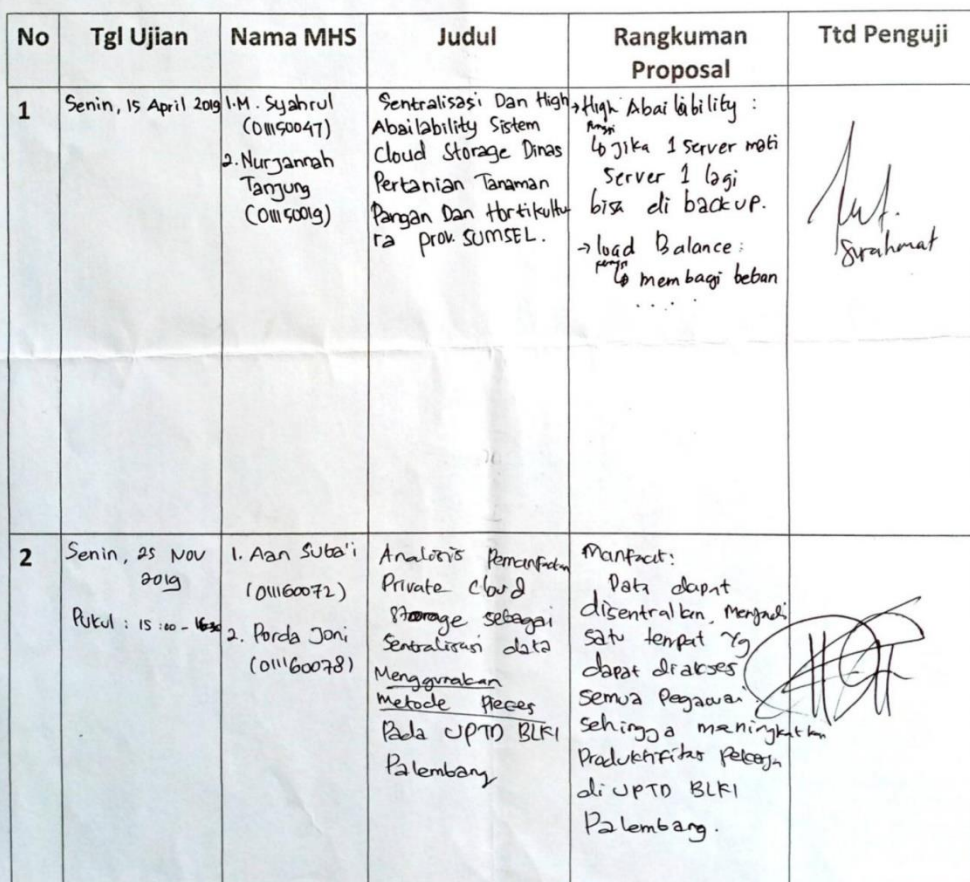 No
Tgl Ujian
Nama MHS
Judul
Rangkuman
Proposal
Ttd Penguji
1
Senin, 15 April 2019
1. M. Syahrul
(011150047)
2. Nurjannah
Tanjung
(011150019)
Sentralisasi Dan High
Abailability Sistem
Cloud Storage Dinas
Pertanian Tanaman
Pangan Dan Hortikultu
ra prov. SUMSEL.
→ High Abailability :
↳ Jika 1 Server mati
Server 1 lagi
bisa di backup.
→ load Balance :
↳ membagi beban
. . . . .
Surahmat
2
Senin, 25 Nov
2019
Pukul : 15:00 -
1. Aan Suba'i
(011160072)
2. Porda Joni
(011160078)
Analisis Pemanfaatan
Private Cloud
Storage sebagai
Sentralisasi data
Menggunakan
Metode Pieces
Pada UPTD BLKI
Palembang
Manfaat:
Data dapat
disentralkan, Menjadi
satu tempat Yg
dapat diakses
Semua Pegawai
sehingga meningkatkan
Produktifitas Pekerja
di UPTD BLKI
Palembang.